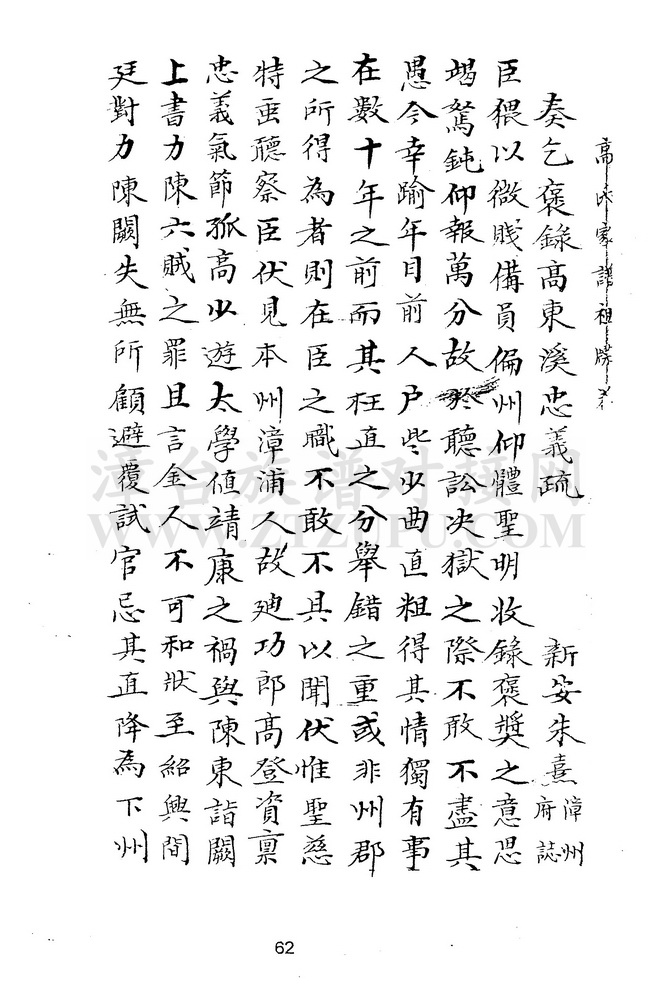 高氏家譜祖牒
奏乞褒錄高東溪忠義疏 新安朱熹 漳州府誌
臣猥以微賤備員偏州仰體聖明收錄褒獎之意思
竭駑鈍仰報萬分故於聽訟决獄之際不敢不盡其
愚今幸踰年目前人户些少曲直粗得其情獨有事
在數十年之前而其枉直之分舉錯之重或非州郡
之所得為者則在臣之職不敢不具以聞伏惟聖慈
特垂聽察臣伏見本州漳浦人故廸功郎高登資禀
忠義氣節孤高少遊太學值靖康之禍與陳東詣闕
上書力陳六賊之罪且言金人不可和狀至紹興間
廷對力陳闕失無所顧避覆試官忌其直降為下州
62
漳台族谱对接网
WWW.ZTZUPU.COM